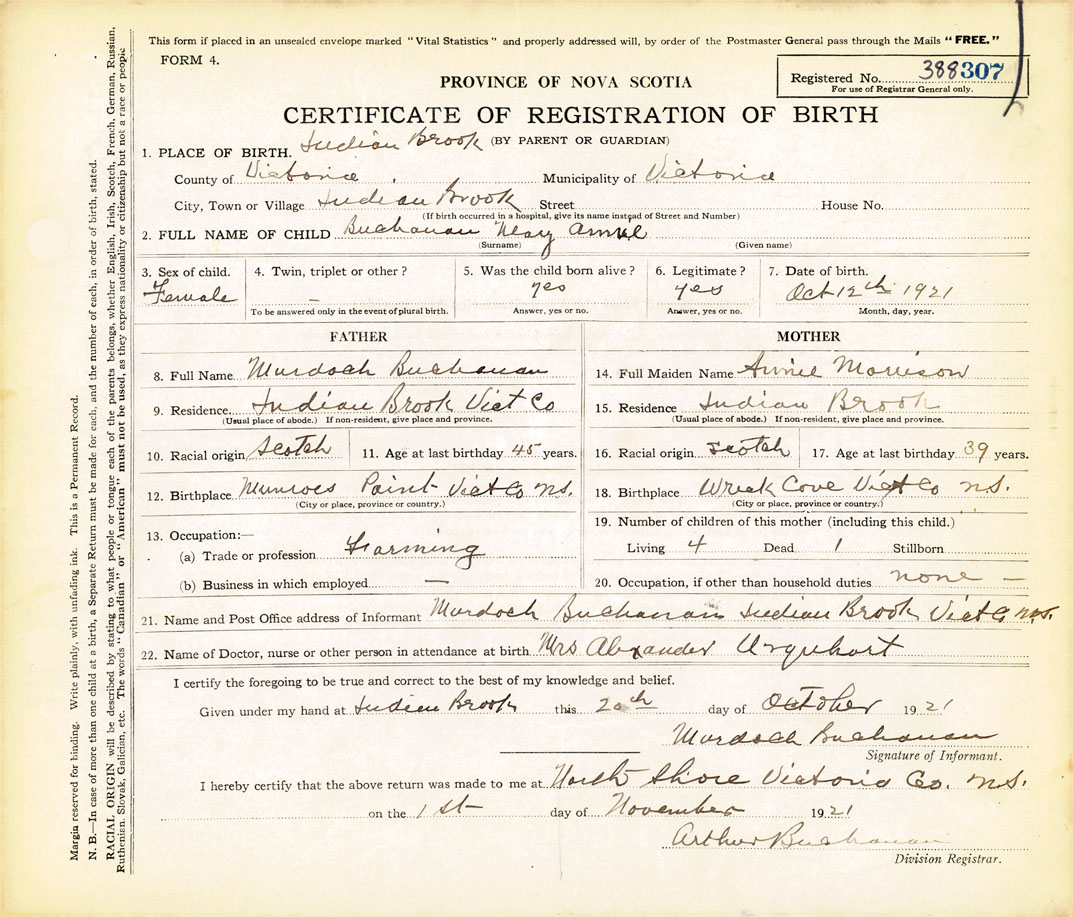 This form if placed in an unsealed envelope marked "Vital Statistics" and properly addressed will, by order of the Postmaster General pass through the Mails "FREE."
FORM 4.
PROVINCE OF NOVA SCOTIA
Registered No. 388307
For use of Registrar General only.
CERTIFICATE OF REGISTRATION OF BIRTH
(BY PARENT OR GUARDIAN)
1. PLACE OF BIRTH. Indian Brook
County of Victoria Municipality of Victoria
City, Town or Village Indian Brook Street House No.
(If birth occurred in a hospital, give its name instead of Street and Number)
2. FULL NAME OF CHILD Buchanan Mary Annie
(Surname) (Given name)
3. Sex of child. 4. Twin, triplet or other? 5. Was the child born alive? 6. Legitimate? 7. Date of birth.
Female – yes yes Oct 12th 1921
To be answered only in the event of plural birth. Answer, yes or no. Answer, yes or no. Month, day, year.
FATHER
8. Full Name Murdoch Buchanan
9. Residence Indian Brook Vict Co
(Usual place of abode.) If non-resident, give place and province.
10. Racial origin Scotch 11. Age at last birthday 45 years.
12. Birthplace Munroes Point Vict Co N.S.
(City or place, province or country.)
13. Occupation:—
(a) Trade or profession Farming
(b) Business in which employed —
MOTHER
14. Full Maiden Name Annie Morrison
15. Residence Indian Brook
(Usual place of abode.) If non-resident, give place and province.
16. Racial origin Scotch 17. Age at last birthday 39 years.
18. Birthplace Wreck Cove Vict Co N.S.
(City or place, province or country.)
19. Number of children of this mother (including this child.)
Living 4 Dead 1 Stillborn
20. Occupation, if other than household duties none –
21. Name and Post Office address of Informant Murdoch Buchanan Indian Brook Vict Co N.S.
22. Name of Doctor, nurse or other person in attendance at birth Mrs Alexander Urquhart
I certify the foregoing to be true and correct to the best of my knowledge and belief.
Given under my hand at Indian Brook this 20th day of October 1921
Murdoch Buchanan
Signature of Informant.
I hereby certify that the above return was made to me at North Shore Victoria Co. N.S.
on the 1st day of November 1921
Arthur Buchanan
Division Registrar.
Margin reserved for binding. Write plainly, with unfading ink. This is a Permanent Record.
N. B.—In case of more than one child at a birth, a Separate Return must be made for each, and the number of each, in order of birth, stated.
RACIAL ORIGIN will be described by stating to what people or tongue each of the parents belongs, whether English, Irish, Scotch, French, German, Russian,
Ruthenian, Slovak, Galician, etc. The words "Canadian" or "American" must not be used, as they express nationality or citizenship but not a race or people